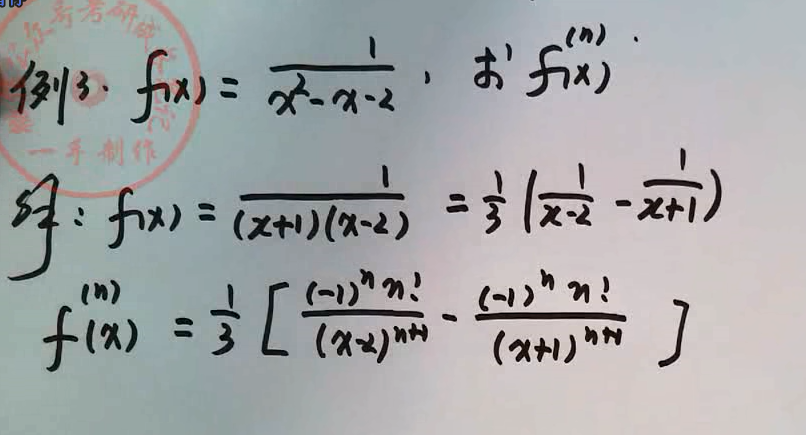 例3. f(x) = 1/(x²-x-2), 求 f⁽ⁿ⁾(x).
解: f(x) = 1/((x+1)(x-2)) = 1/3 (1/(x-2) - 1/(x+1))
f⁽ⁿ⁾(x) = 1/3 [ (-1)ⁿ n!/(x-2)ⁿ⁺¹ - (-1)ⁿ n!/(x+1)ⁿ⁺¹ ]
一手制作